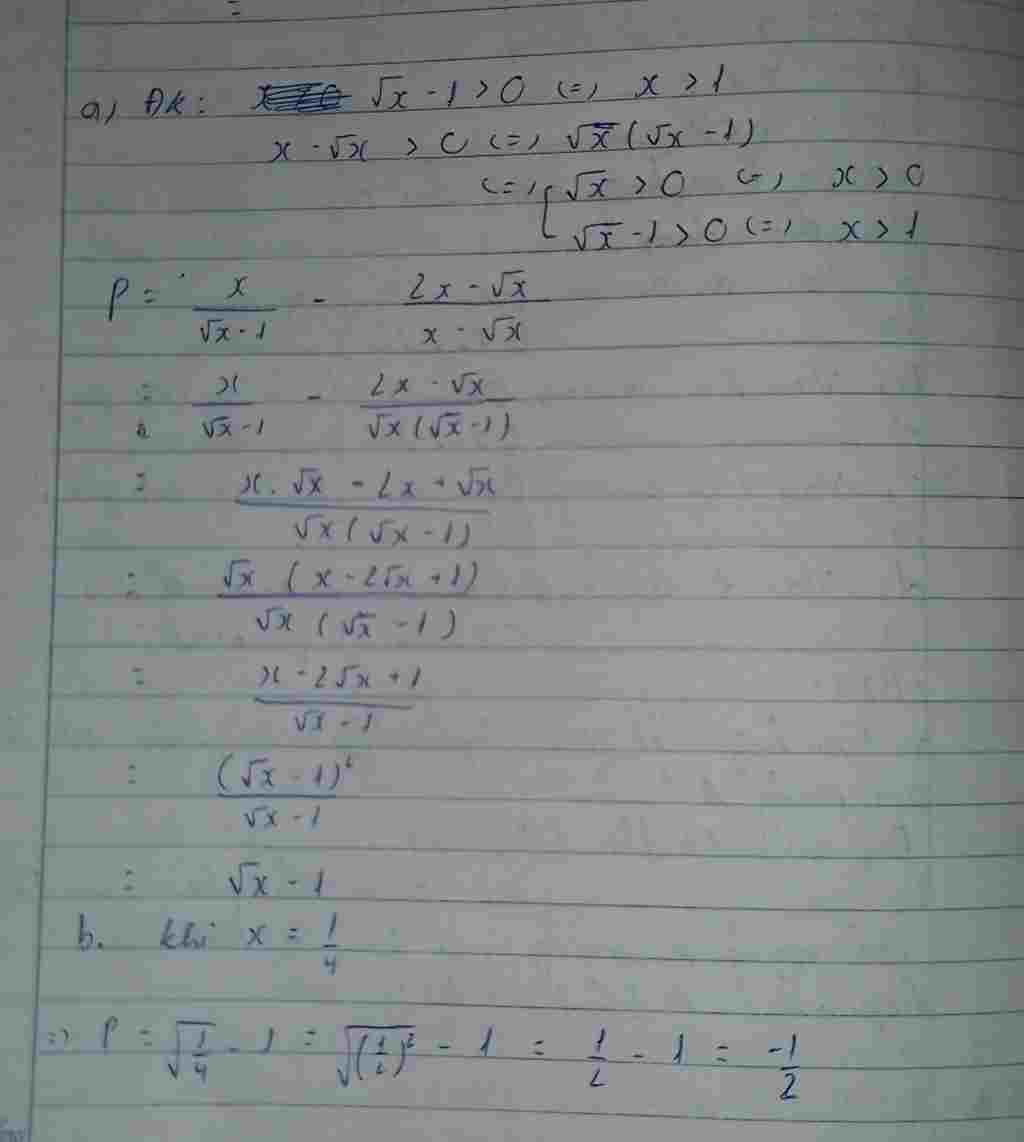 =
a) Đk: √x - 1 > 0 (=) x > 1
x - √x > 0 (=) √x (√x - 1)
(=) [ √x > 0 (=) x > 0
√x - 1 > 0 (=) x > 1
P = x / (√x - 1) - (2x - √x) / (x - √x)
= x / (√x - 1) - (2x - √x) / (√x (√x - 1))
= (x . √x - 2x + √x) / (√x (√x - 1))
= (√x (x - 2√x + 1)) / (√x (√x - 1))
= (x - 2√x + 1) / (√x - 1)
= (√x - 1)² / (√x - 1)
= √x - 1
b. khi x = 1/4
=> P = √(1/4) - 1 = √((1/2)²) - 1 = 1/2 - 1 = -1/2